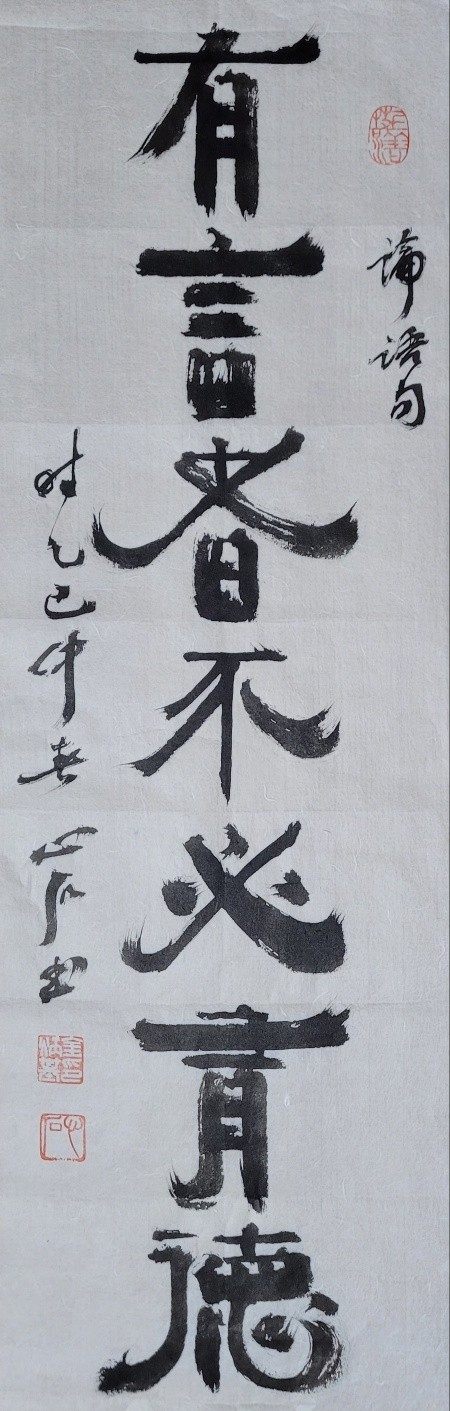 論語句
有言者不必有德
时乙巳仲春心石书
心石